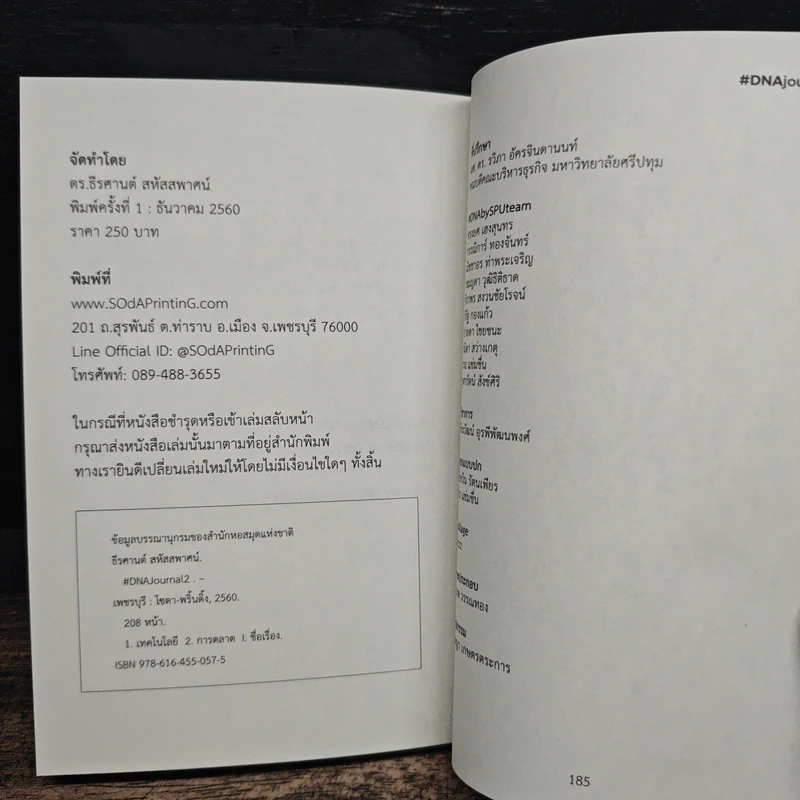 จัดทำโดย
ดร.ธีรศานต์ สหัสสพาศน์
พิมพ์ครั้งที่ 1 : ธันวาคม 2560
ราคา 250 บาท
พิมพ์ที่
www.SOdAPrintinG.com
201 ถ.สุรพันธ์ ต.ท่าราบ อ.เมือง จ.เพชรบุรี 76000
Line Official ID: @SOdAPrintinG
โทรศัพท์: 089-488-3655
ในกรณีที่หนังสือชำรุดหรือเข้าเล่มสลับหน้า
กรุณาส่งหนังสือเล่มนั้นมาตามที่อยู่สำนักพิมพ์
ทางเรายินดีเปลี่ยนเล่มใหม่ให้โดยไม่มีเงื่อนไขใดๆ ทั้งสิ้น
ข้อมูลบรรณานุกรมของสำนักหอสมุดแห่งชาติ
ธีรศานต์ สหัสสพาศน์.
#DNAJournal2 . –
เพชรบุรี : โซดา-พริ้นติ้ง, 2560.
208 หน้า.
1. เทคโนโลยี 2. การตลาด I. ชื่อเรื่อง.
ISBN 978-616-455-057-5
#DNAjou
ที่ปรึกษา
ดร. รวิภา อัครจินดานนท์
คณบดีคณะบริหารธุรกิจ มหาวิทยาลัยศรีปทุม
#DNAbySPUteam
เฮงสุนทร
ทองจันทร์
ท่าพระเจริญ
วุฒิธิติธาด
สงวนชัยโรจน์
กองแก้ว
ไชยชนะ
สว่างเกตุ
แช่มชื่น
สังข์ศิริ
อุรพีพัฒนพงศ์
รัตนเพียร
แช่มชื่น
วรรณทอง
เกษตรตระการ
185